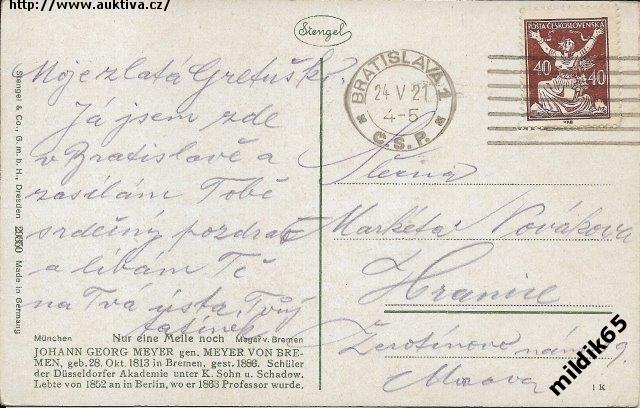 http://www.auktiva.cz/
Stengel
POŠTA ČESKOSLOVENSKÁ
40 40
BRATISLAVA 1
24 V 21
4-5
Č.S.P.
Stengel & Co., G. m. b. H., Dresden 29300 Made in Germany
Moje zlatá Gretuško.
Já jsem zde
v Bratislavě a
zasílám Tobě
srdečný pozdrav
a líbám Tě
na Tvá ústa. Tvůj
tatínek
Slečna
Markéta Nováková
Hranice
Žerotínovo nám. 9.
Morava
München Nur eine Meile noch Magar v. Bremen
JOHANN GEORG MEYER gen. MEYER VON BRE-
MEN, geb. 28. Okt. 1813 in Bremen, gest. 1886. Schüler
der Düsseldorfer Akademie unter K. Sohn u. Schadow.
Lebte von 1852 an in Berlin, wo er 1863 Professor wurde.
1 K
mildik65